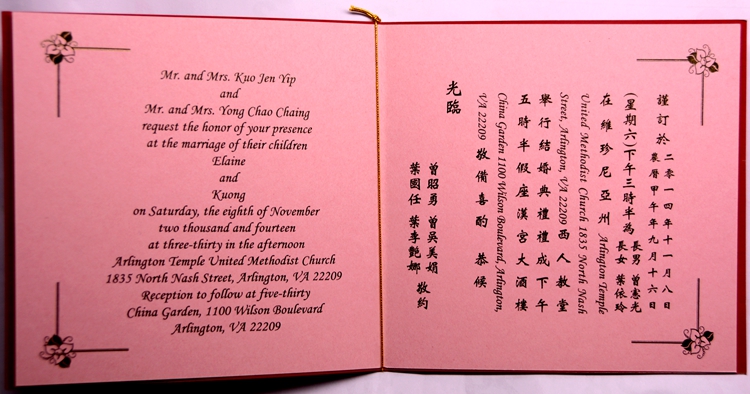 Mr. and Mrs. Kuo Jen Yip
and
Mr. and Mrs. Yong Chao Chaing
request the honor of your presence
at the marriage of their children
Elaine
and
Kuong
on Saturday, the eighth of November
two thousand and fourteen
at three-thirty in the afternoon
Arlington Temple United Methodist Church
1835 North Nash Street, Arlington, VA 22209
Reception to follow at five-thirty
China Garden, 1100 Wilson Boulevard
Arlington, VA 22209
謹訂於
二零一四年十一月八日
農曆甲午年九月十六日
(星期六)下午三時半為
長男 曾憲光
長女 葉依玲
在維珍尼亞州 Arlington Temple
United Methodist Church 1835 North Nash
Street, Arlington, VA 22209 西人教堂
舉行結婚典禮禮成下午
五時半假座漢宮大酒樓
China Garden 1100 Wilson Boulevard, Arlington,
VA 22209 敬備喜酌 恭候
光臨
曾昭勇 曾吳美娟
葉國任 葉李艷娜 敬約